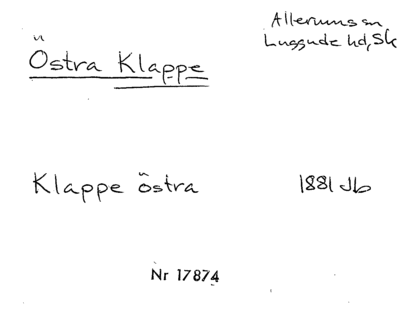 Allerums sn
Luggude hd, Sk
Östra Klappe
Klappe östra 1881 Jb
Nr 17874